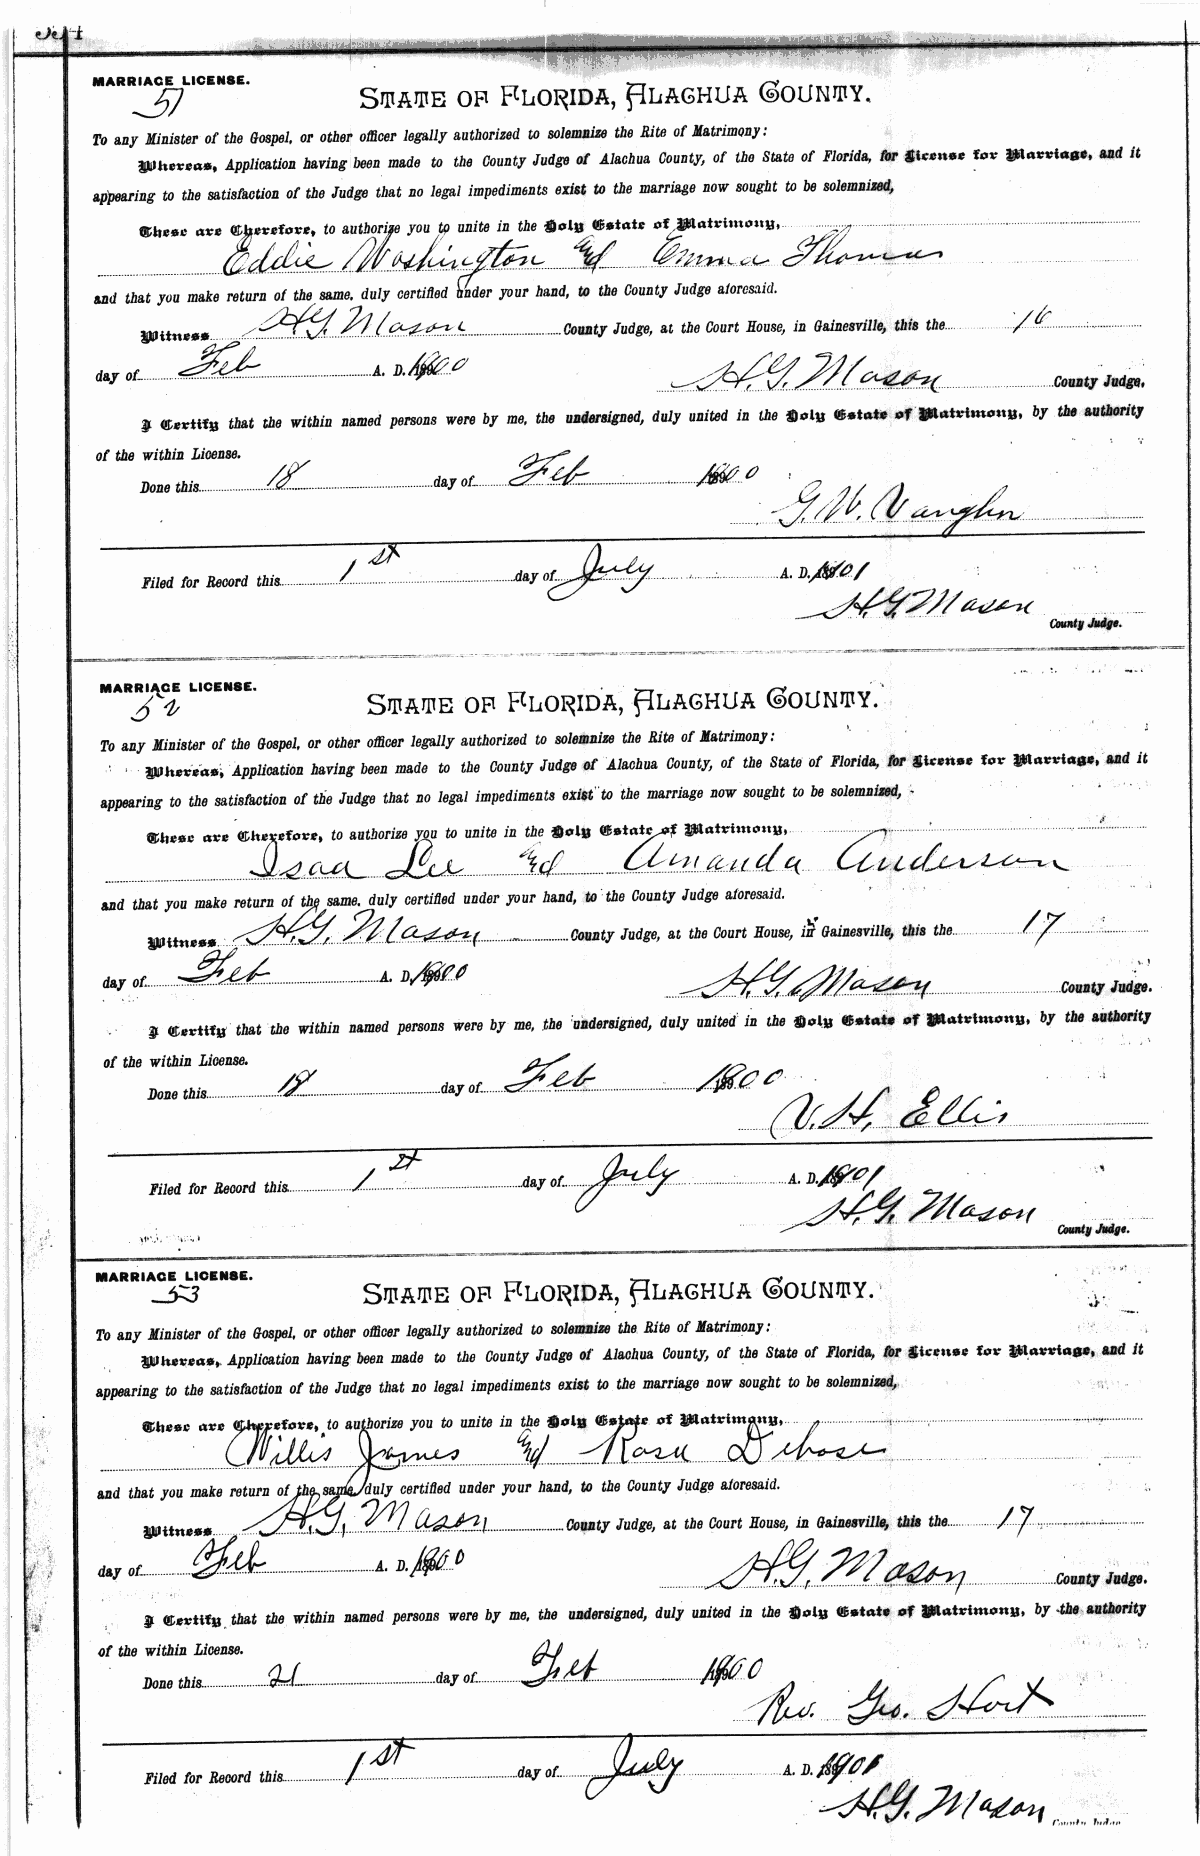 MARRIAGE LICENSE.
51
STATE OF FLORIDA, ALACHUA COUNTY.
To any Minister of the Gospel, or other officer legally authorized to solemnize the Rite of Matrimony:
Whereas, Application having been made to the County Judge of Alachua County, of the State of Florida, for License for Marriage, and it
appearing to the satisfaction of the Judge that no legal impediments exist to the marriage now sought to be solemnized,
These are Therefore, to authorize you to unite in the Holy Estate of Matrimony,
Eddie Washington and Emma Thomas
and that you make return of the same, duly certified under your hand, to the County Judge aforesaid.
Witness H.G. Mason County Judge, at the Court House, in Gainesville, this the 16
day of Feb A. D. 1900 H.G. Mason County Judge.
I Certify that the within named persons were by me, the undersigned, duly united in the Holy Estate of Matrimony, by the authority
of the within License.
Done this 18 day of Feb 1900
G. W. Vaughn
Filed for Record this 1st day of July A. D. 1901
H.G. Mason
County Judge.
MARRIAGE LICENSE.
52
STATE OF FLORIDA, ALACHUA COUNTY.
To any Minister of the Gospel, or other officer legally authorized to solemnize the Rite of Matrimony:
Whereas, Application having been made to the County Judge of Alachua County, of the State of Florida, for License for Marriage, and it
appearing to the satisfaction of the Judge that no legal impediments exist to the marriage now sought to be solemnized,
These are Therefore, to authorize you to unite in the Holy Estate of Matrimony,
Isaa Lee and Amanda Anderson
and that you make return of the same, duly certified under your hand, to the County Judge aforesaid.
Witness H.G. Mason County Judge, at the Court House, in Gainesville, this the 17
day of Feb A. D. 1900 H.G. Mason County Judge.
I Certify that the within named persons were by me, the undersigned, duly united in the Holy Estate of Matrimony, by the authority
of the within License.
Done this 18 day of Feb 1900
V. H. Ellis
Filed for Record this 1st day of July A. D. 1901
H.G. Mason
County Judge.
MARRIAGE LICENSE.
53
STATE OF FLORIDA, ALACHUA COUNTY.
To any Minister of the Gospel, or other officer legally authorized to solemnize the Rite of Matrimony:
Whereas, Application having been made to the County Judge of Alachua County, of the State of Florida, for License for Marriage, and it
appearing to the satisfaction of the Judge that no legal impediments exist to the marriage now sought to be solemnized,
These are Therefore, to authorize you to unite in the Holy Estate of Matrimony,
Willis James and Rosa Debose
and that you make return of the same, duly certified under your hand, to the County Judge aforesaid.
Witness H.G. Mason County Judge, at the Court House, in Gainesville, this the 17
day of Feb A. D. 1900 H.G. Mason County Judge.
I Certify that the within named persons were by me, the undersigned, duly united in the Holy Estate of Matrimony, by the authority
of the within License.
Done this 21 day of Feb 1900
Rev. Geo. Hort
Filed for Record this 1st day of July A. D. 1901
H.G. Mason
County Judge